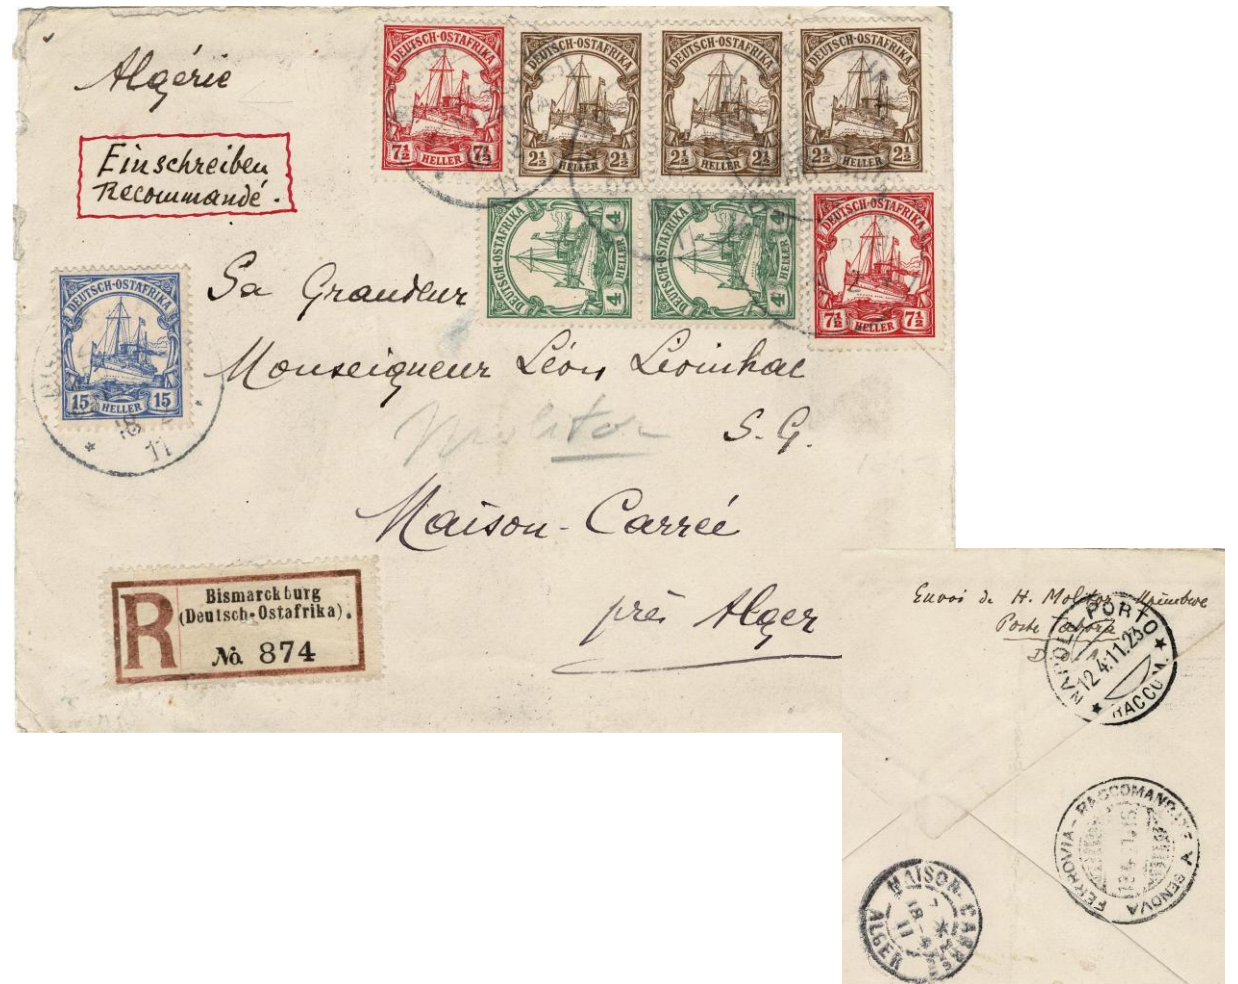 Algérie
Einschreiben
Recommandé.
DEUTSCH-OSTAFRIKA
7½ HELLER 7½
DEUTSCH-OSTAFRIKA
2½ HELLER 2½
DEUTSCH-OSTAFRIKA
2½ HELLER 2½
DEUTSCH-OSTAFRIKA
2½ HELLER 2½
DEUTSCH-OSTAFRIKA
4 HELLER 4
DEUTSCH-OSTAFRIKA
4 HELLER 4
DEUTSCH-OSTAFRIKA
7½ HELLER 7½
DEUTSCH-OSTAFRIKA
15 HELLER 15
18 2
11
Sa Grandeur
Monseigneur Léon Livinhac
Molitor
S. G.
Maison-Carrée
près Alger
R
Bismarckburg
(Deutsch-Ostafrika).
No. 874
Envoi de H. Molitor
Poste Tabora
NAPOLI PORTO
12 4.11.23
RACCOM
FERROVIA - RACCOMANDATE
GENOVA
MAISON-CARRÉE
18 -4
11
ALGER